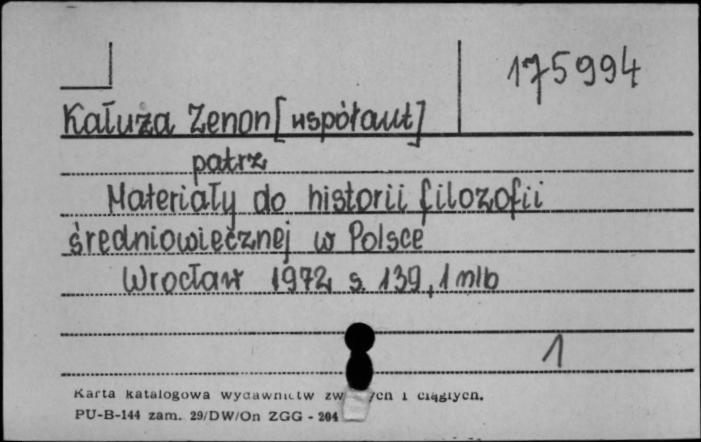 175994
Kałuża Zenon [współaut]
patrz
Materiały do historii filozofii
średniowiecznej w Polsce
Wrocław 1972 s. 139, 1 nlb
1
Karta katalogowa wydawnictw zw ych i ciągłych.
PU-B-144 zam. 29/DW/On ZGG - 204